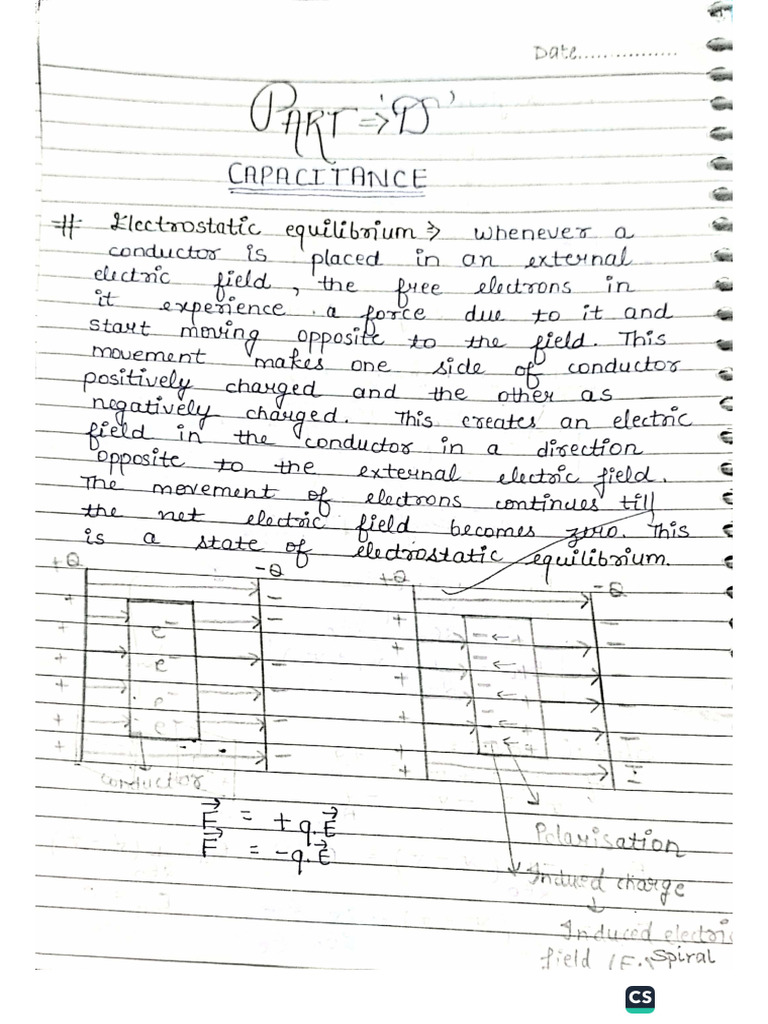 Date................
PART ⇒ 'D'
CAPACITANCE
# Electrostatic equilibrium ⇒ whenever a
conductor is placed in an external
electric field, the free electrons in
it experience a force due to it and
start moving opposite to the field. This
movement makes one side of conductor
positively charged and the other as
negatively charged. This creates an electric
field in the conductor in a direction
opposite to the external electric field.
The movement of electrons continues till
the net electric field becomes zero. This
is a state of electrostatic equilibrium.
+Q -Q +Q -Q
e⁻
e⁻
e⁻
e⁻
conductor
F⃗ = +q.E⃗
F⃗ = -q.E⃗
Polarisation
Induced charge
Induced electric
field
Spiral
CS